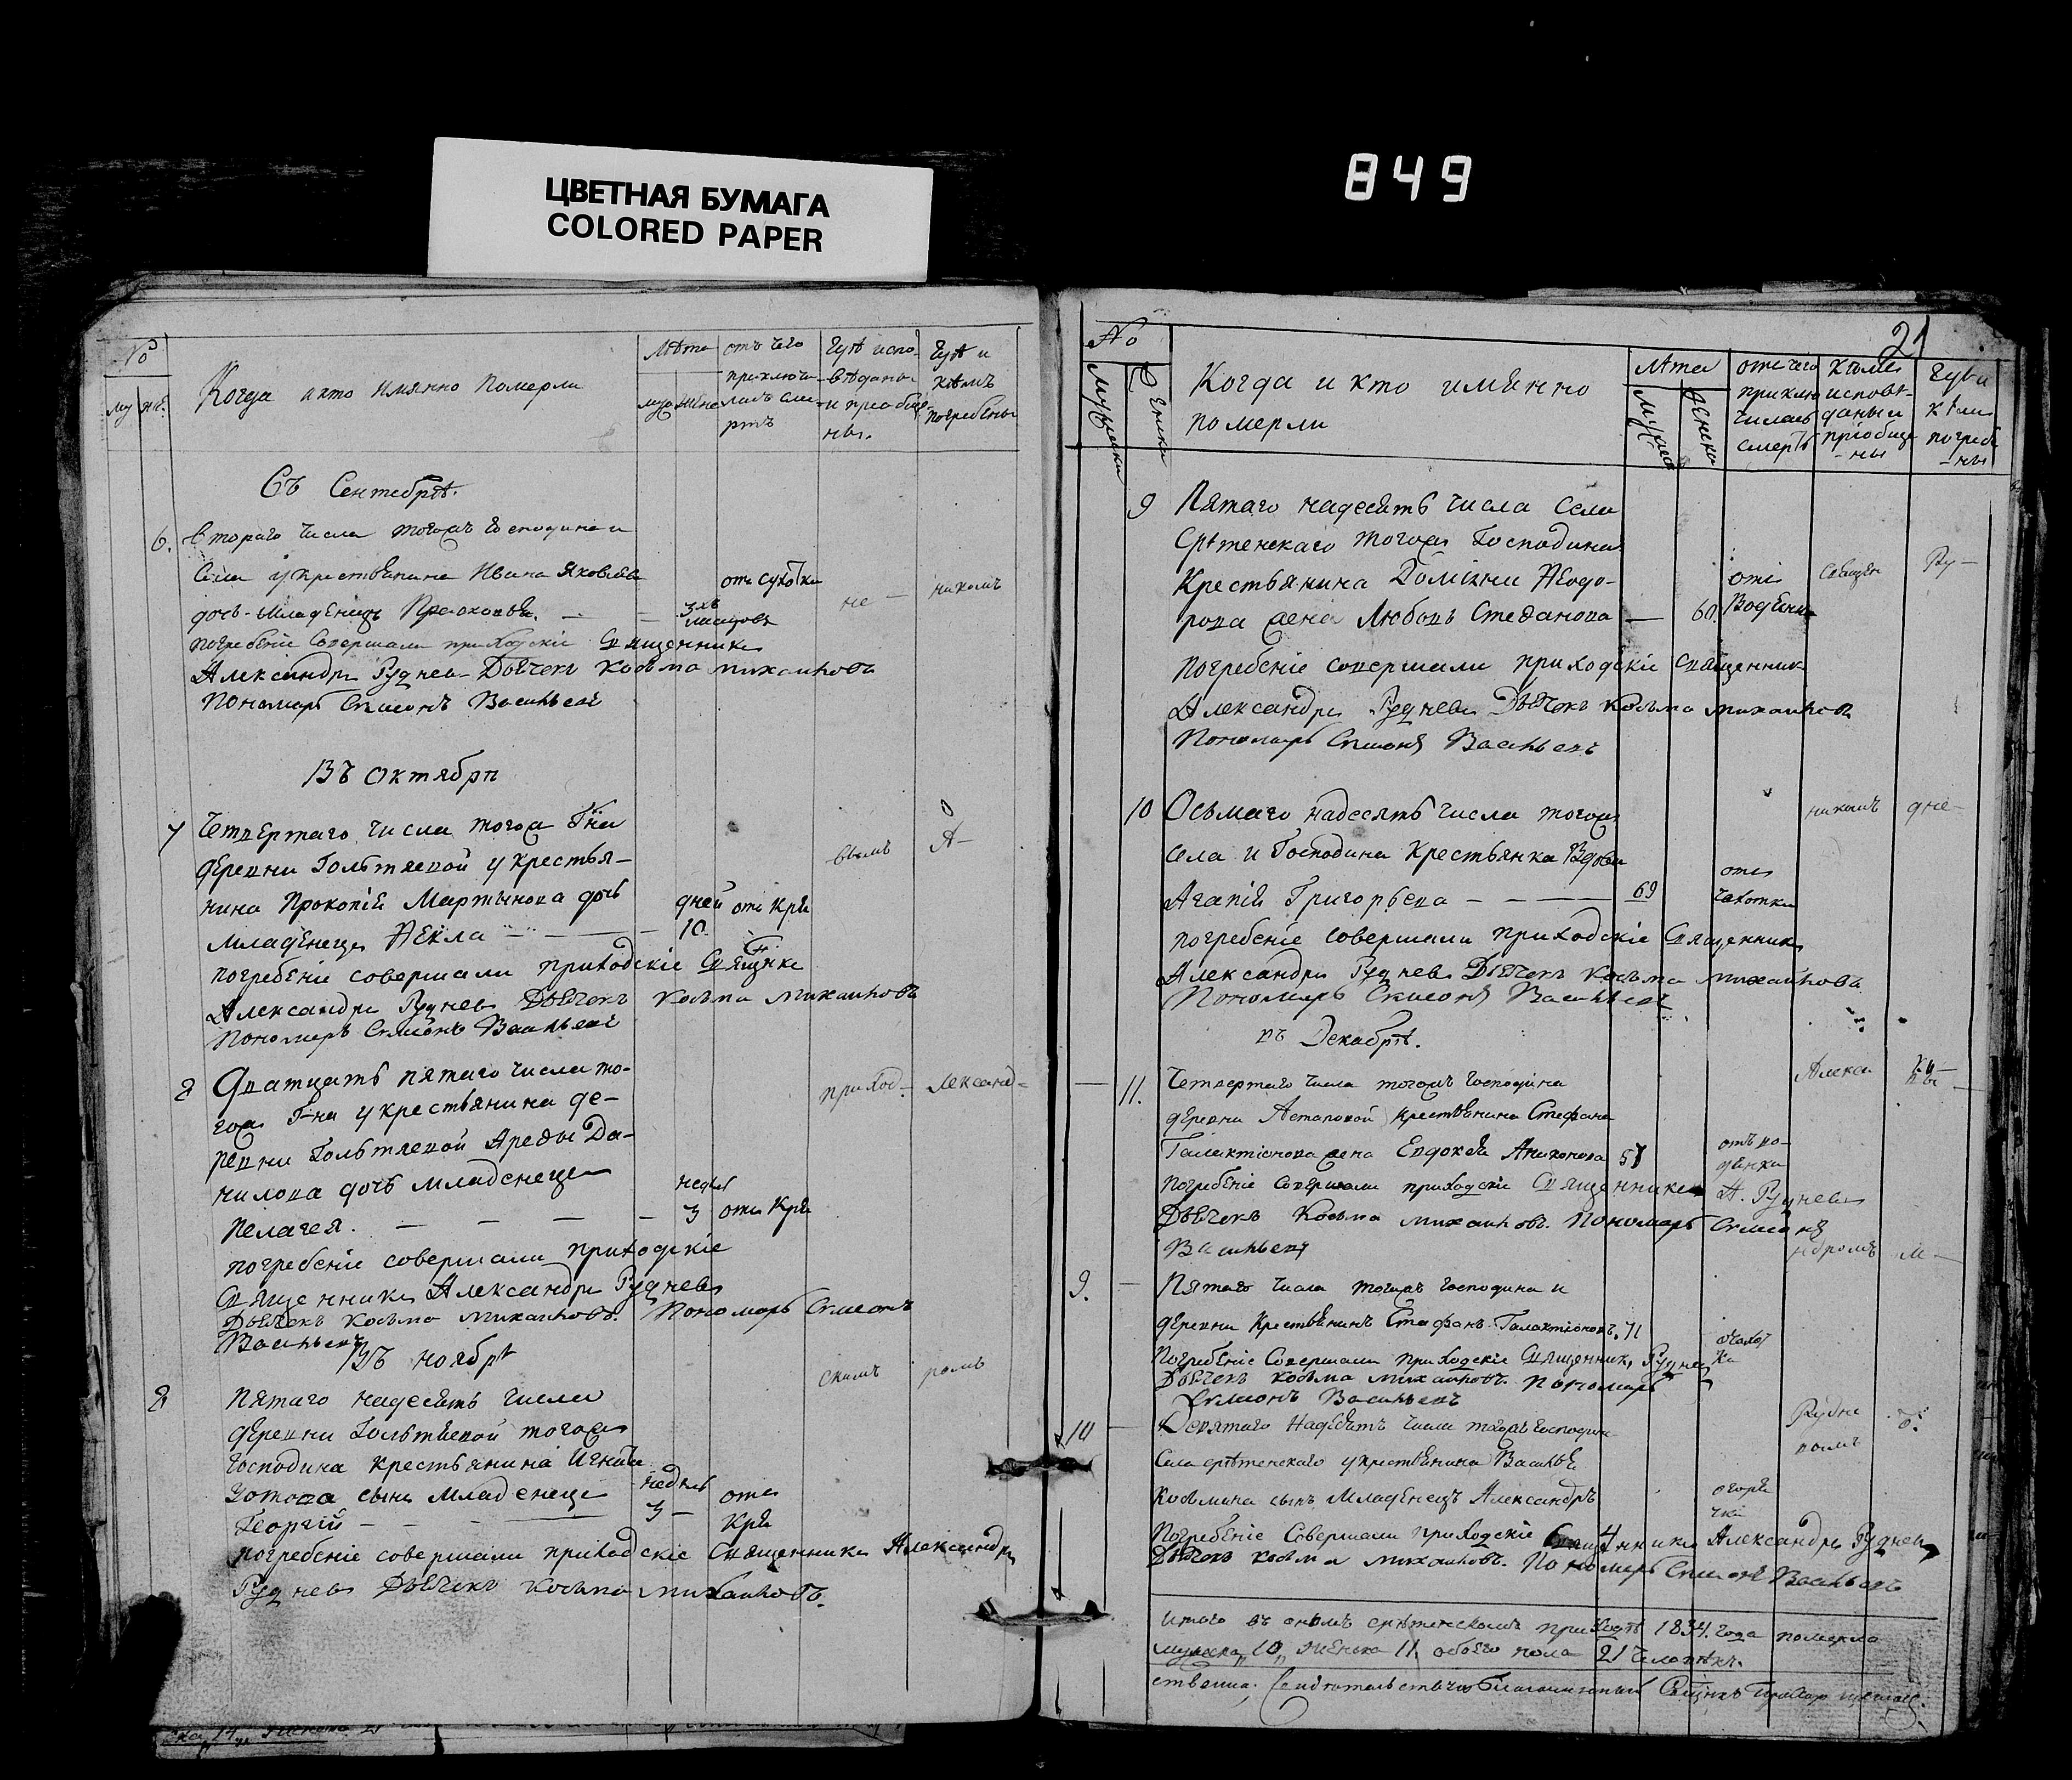 ЦВЕТНАЯ БУМАГА
COLORED PAPER
849
№
Когда и кто имянно померли
Лѣта
отъ чего приключилась смерть
Гдѣ исповѣданы и приобщены.
Гдѣ и кѣмъ погребены
Съ Сентебрѣ.
6. Втораго числа тогожъ Господина и
села у крестьянина Ивана Яковлева
дочь Младенецъ
отъ сухотки
не —
никомъ
погребеніе совершали приходскіе Священникъ
Александръ Рудневъ Дьячекъ Козьма Михаиловъ
Пономарь Симіонъ Васильевъ
Въ Октябри
7 Четвертаго числа тогож Гна
деревни Гольтяевой у крестья–
нина Прокопія Мартынова дочь
младенецъ Ѳекла — дней 10. отъ Кри
погребеніе совершали приходскіе Свящнкъ
Александръ Рудневъ Дьячекъ Козьма Михаиловъ
Пономарь Симіонъ Васильевъ
8 Дватцать пятаго числа то–
гож Г–на у крестьянина де–
ревни Гольтяевой Арефы Да–
нилова дочь младенецъ
Пелагея. — — — — недѣль 3 отъ Кри
приход–
лександ–
погребеніе совершали приходскіе
Священникъ Александръ Рудневъ
Дьячекъ Козьма Михаиловъ. Пономарь Симіонъ
Васильевъ
Въ ноябрѣ
8 Пятаго надесять числа
деревни Гольтяевой тогожъ
Господина крестьянина Игнатія
Зотова сынъ младенецъ
Георгій — — — недѣль 3 — отъ Кри
скимъ
ромъ
погребеніе совершали приходскіе Священникъ Александръ
Рудневъ Дьячекъ Козьма Михаиловъ.
21
№
Мужеска
Женска
Когда и кто имѣнно
померли
Лѣта
Мужеска
Женска
отъ чего приключилась смерть
кѣмъ исповѣданы и пріобщены
Гдѣ и кѣмъ погребены
9 Пятаго надесѣть числа Села
Срѣтенскаго тогожъ Господина
Крестьянина Ѳомины Ѳеодо–
рова жена Любовь Стефанова — 60. отъ Водѣнки
Священ
Ру–
погребеніе совершали приходскіе священникъ
Александръ Рудневъ Дьячекъ Козьма Михаиловъ
Пономарь Симіонъ Васильевъ
10 Осьмаго надесять числа тогожъ
села и Господина Крестьянка Вдова
Агапія Григорьева — — — 69 отъ чахотки
никомъ
дне–
погребеніе совершали приходскіе Священникъ
Александръ Рудневъ Дьячекъ Козьма Михаиловъ
Пономарь Симіонъ Васильевъ
въ Декабрѣ.
11. Четвертаго числа тогожъ господина
деревни Астаповой крестьянина Стефана
Галактіонова жена Евдокея 57 отъ во–
дѣнки
Алекса
погребеніе совершали приходскіе Священникъ А. Рудневъ
Дьячекъ Козьма Михаиловъ. Пономарь Симіонъ
Васильевъ
9. — Пятаго числа тогожъ господина и
деревни Крестьянинъ Стефанъ Галактіоновъ. 71
ндромъ
м–
Погребеніе Совершали приходскіе Священникъ Рудневъ
Дьячекъ Козьма Михаиловъ. Пономарь
Симіонъ Васильевъ
10 — Девятаго Надесѣть числа тогожъ господина
Села срѣтенскаго у крестьянина Василья
Козьмина сынъ Младенецъ Александръ
Рудне
вымъ
Погребеніе Совершали приходскіе Священникъ Александръ Рудневъ
Дьячекъ Козьма Михаиловъ. Пономарь Симіонъ Васильевъ
Итого въ ономъ срѣтенскомъ приходѣ 1834. года померло
мужеска 10, женска 11. обоего пола 21 человѣкъ.